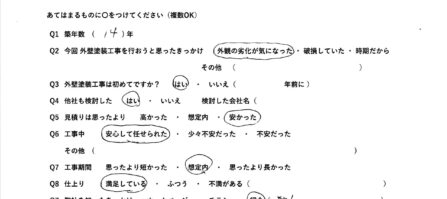 あてはまるものに○をつけてください（複数OK）
Q1 築年数（ 14 ）年
Q2 今回 外壁塗装工事を行おうと思ったきっかけ 外観の劣化が気になった ・ 破損していた ・ 時期だから
その他 （ ）
Q3 外壁塗装工事は初めてですか？ はい ・ いいえ（ 年前に ）
Q4 他社も検討した はい ・ いいえ 検討した会社名（
Q5 見積りは思ったより 高かった ・ 想定内 ・ 安かった
Q6 工事中 安心して任せられた ・ 少々不安だった ・ 不安だった
その他 （ ）
Q7 工事期間 思ったより短かった ・ 想定内 ・ 思ったより長かった
Q8 仕上り 満足している ・ ふつう ・ 不満がある（ ）